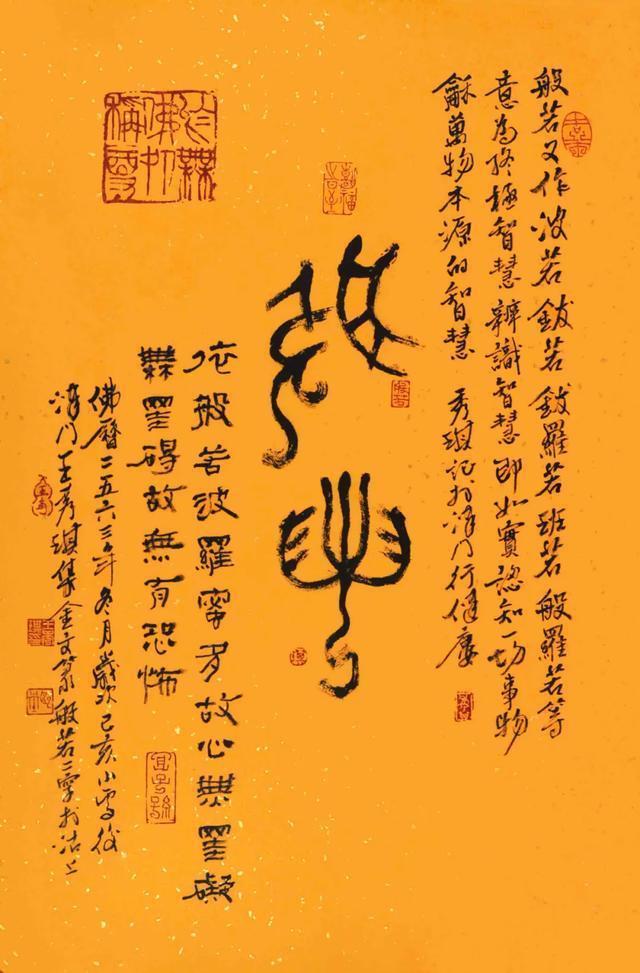 般若又作波若鈸若鈸羅若班若般羅若等
意為終極智慧辨識智慧即如實認知一切事物
龢萬物本源的智慧 秀琪記於津門行健廬
般若
依般若波羅蜜多故心無罣礙
無罣碍故無有恐怖
佛曆二五六三年冬月歲次己亥小雪後
津門王秀琪集金文篆般若二字於沽上
宜子孫